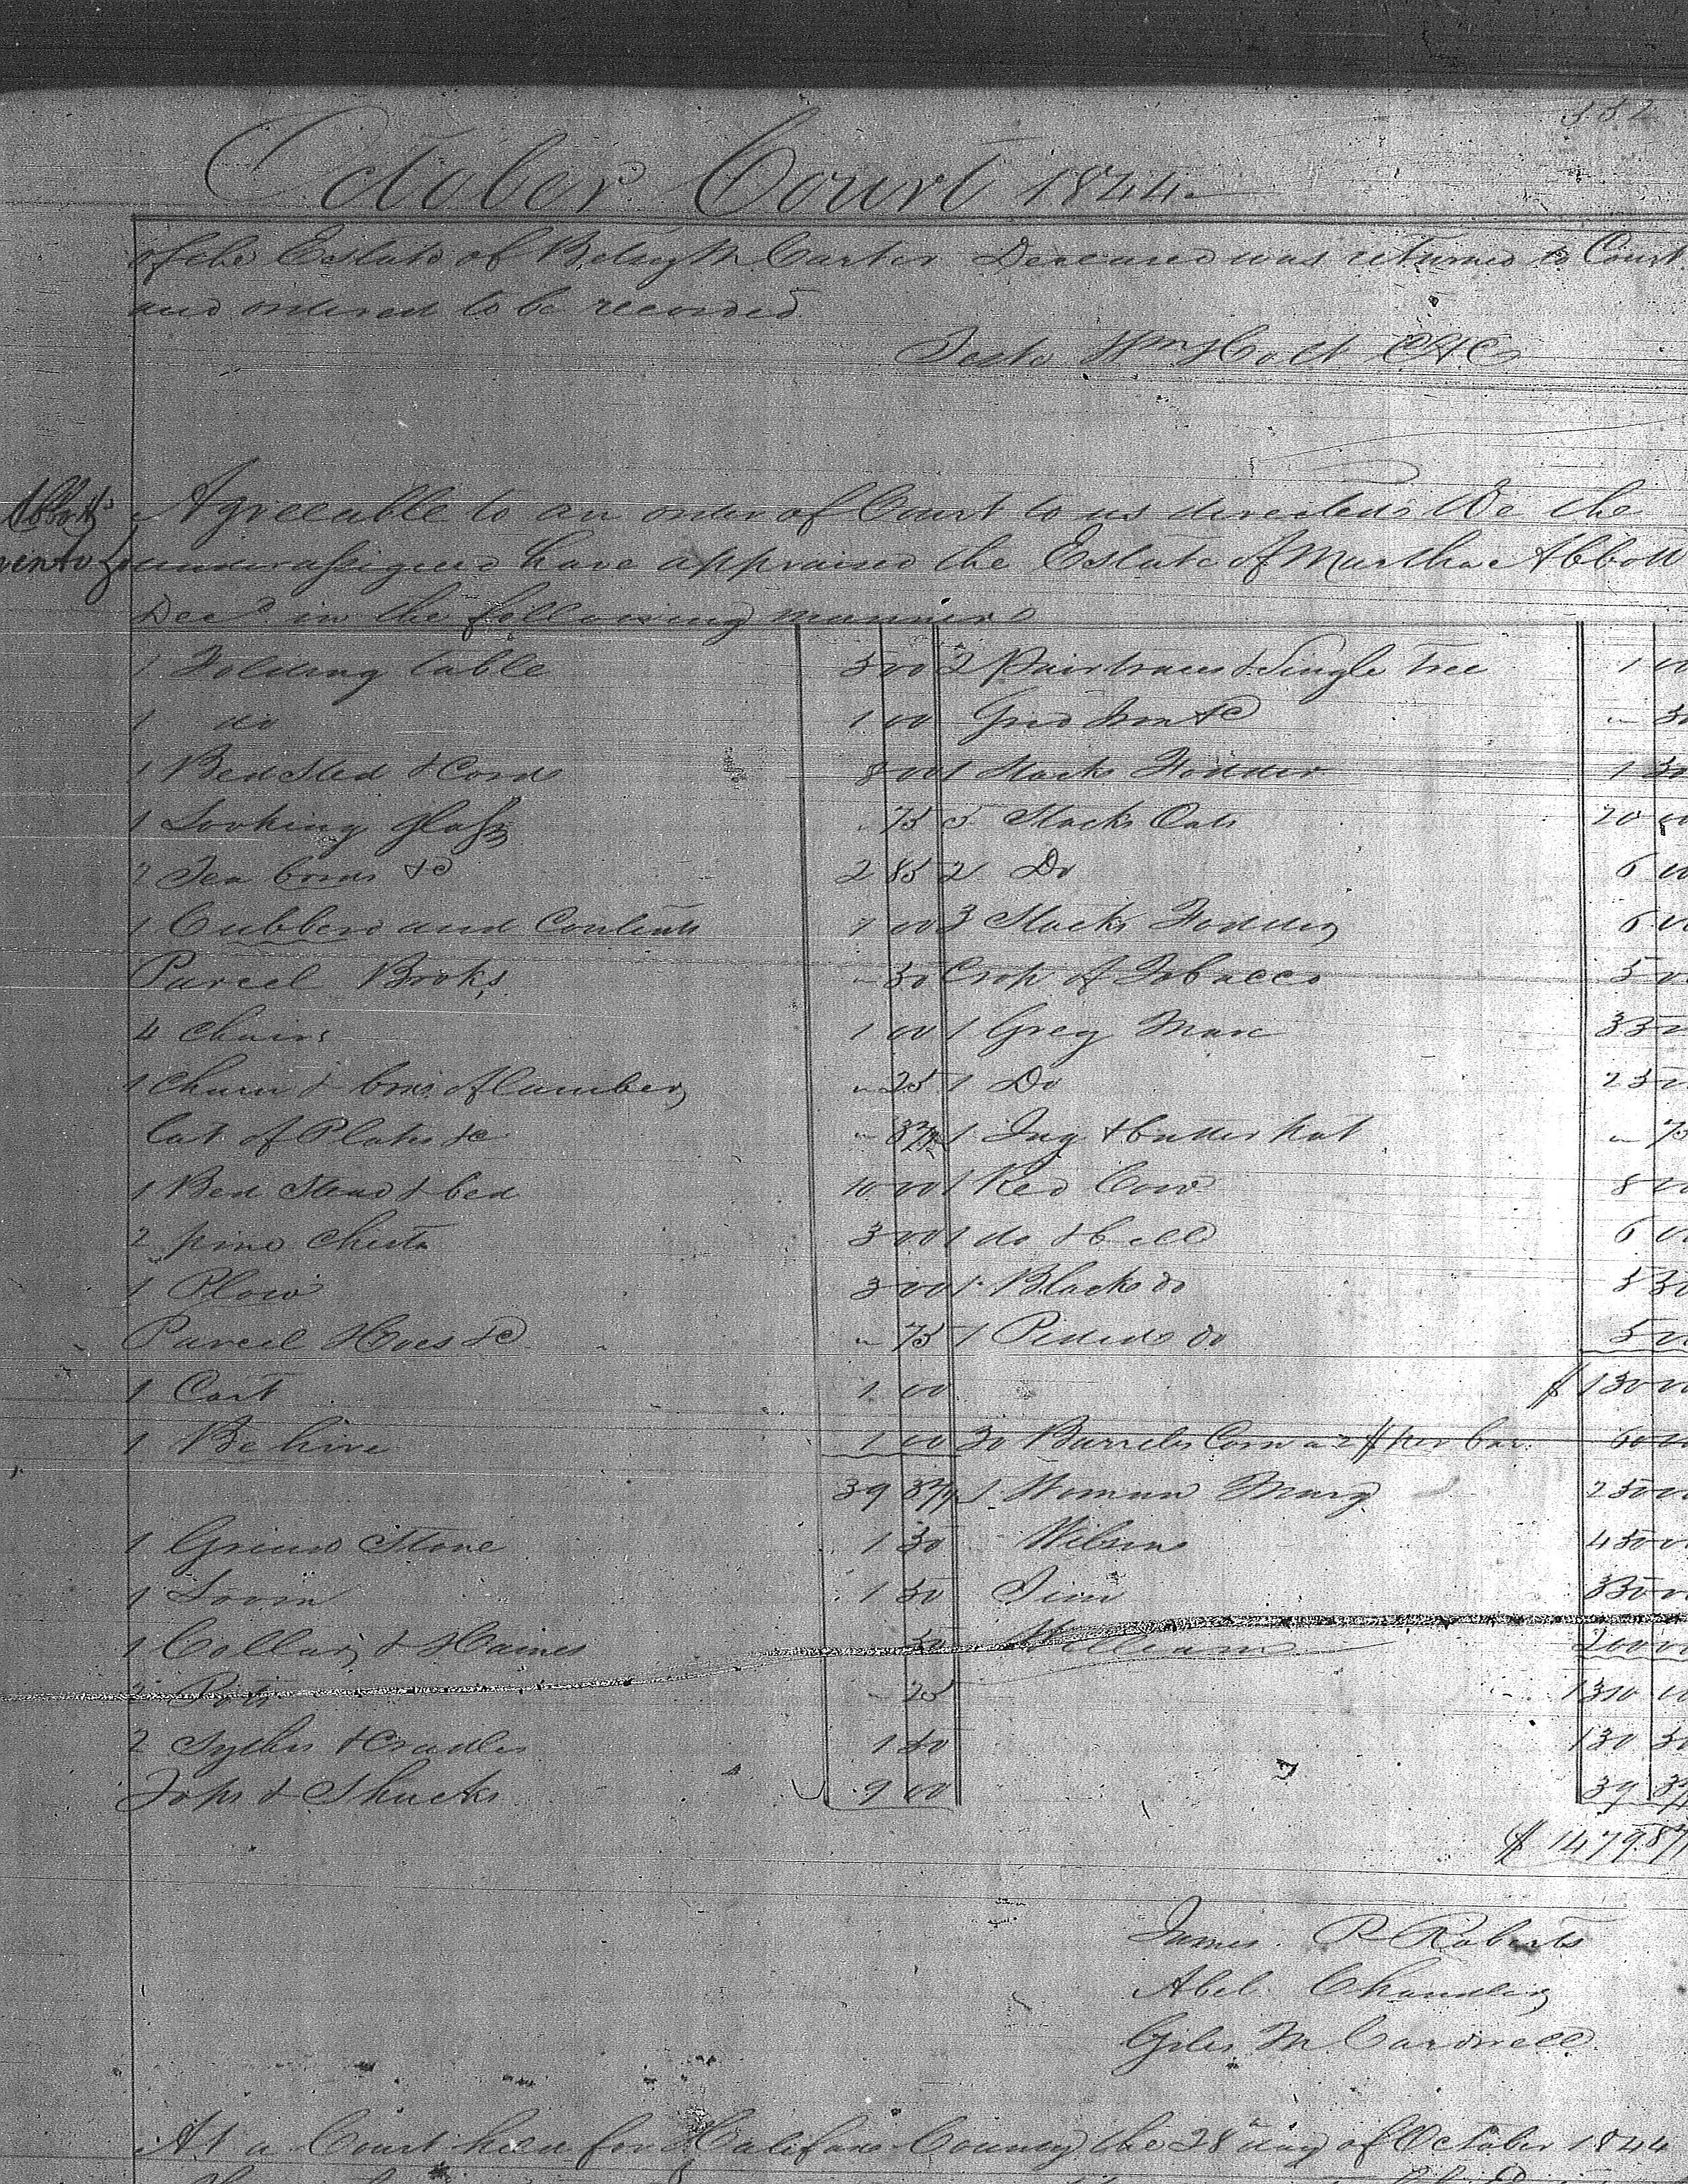 332
October Court 1844
of the Estate of Betsy M Carter Deceased was returned to Court
and ordered to be recorded
Teste Wm Holt CHC
Abbotts Agreeable to an order of Court to us directed We the
undersigned have appraised the Estate of Martha Abbott
Decd. in the following manner
1 Folding table 3 00 2 Pair traces & Single Tree 1 00
1 do 1 00 Grid Iron &c " 50
1 Bed Sted & Cord 8 00 1 Stack Fodder 1 50
1 Looking glass " 75 5 Stacks Oats 20 00
2 Tea &c 2 85 2 Do 6 00
1 Cubberd and Contents 7 00 3 Stacks Fodder 6 00
Parcel Books " 50 Crop of Tobacco 5 00
4 Chairs 1 00 1 Grey Mare 35
1 Churn & of Lumber " 25 1 Do 25
Lot of Plates &c " 37½ 1 Jug & butter pot " 75
1 Bed Stead & bed 10 00 1 Red Cow 8 00
2 pine Chests 3 00 1 do & bell 6 00
1 Plow 3 00 1 Black do 5 50
Parcel Hoes &c " 75 1 do 5 00
1 Cart 1 00 $ 130
1 Be hive 1 00 30 Barrels Corn a 2$ per bar. 60 00
39 37½ 1 Woman Mary 250
1 Grind Stone 1 50 Wilson 450
1 Loom 1 50 Jim 350
1 Collar & Haines 50 William 200
2 Pots " 25 1310 00
2 Sythes & Cradles 1 50 130 50
Tops & Shucks 9 00 39 37
$ 1479.87
James R Roberts
Abel Chandler
Giles M Cardwell
At a Court held for Halifax County the 28th day of October 1844